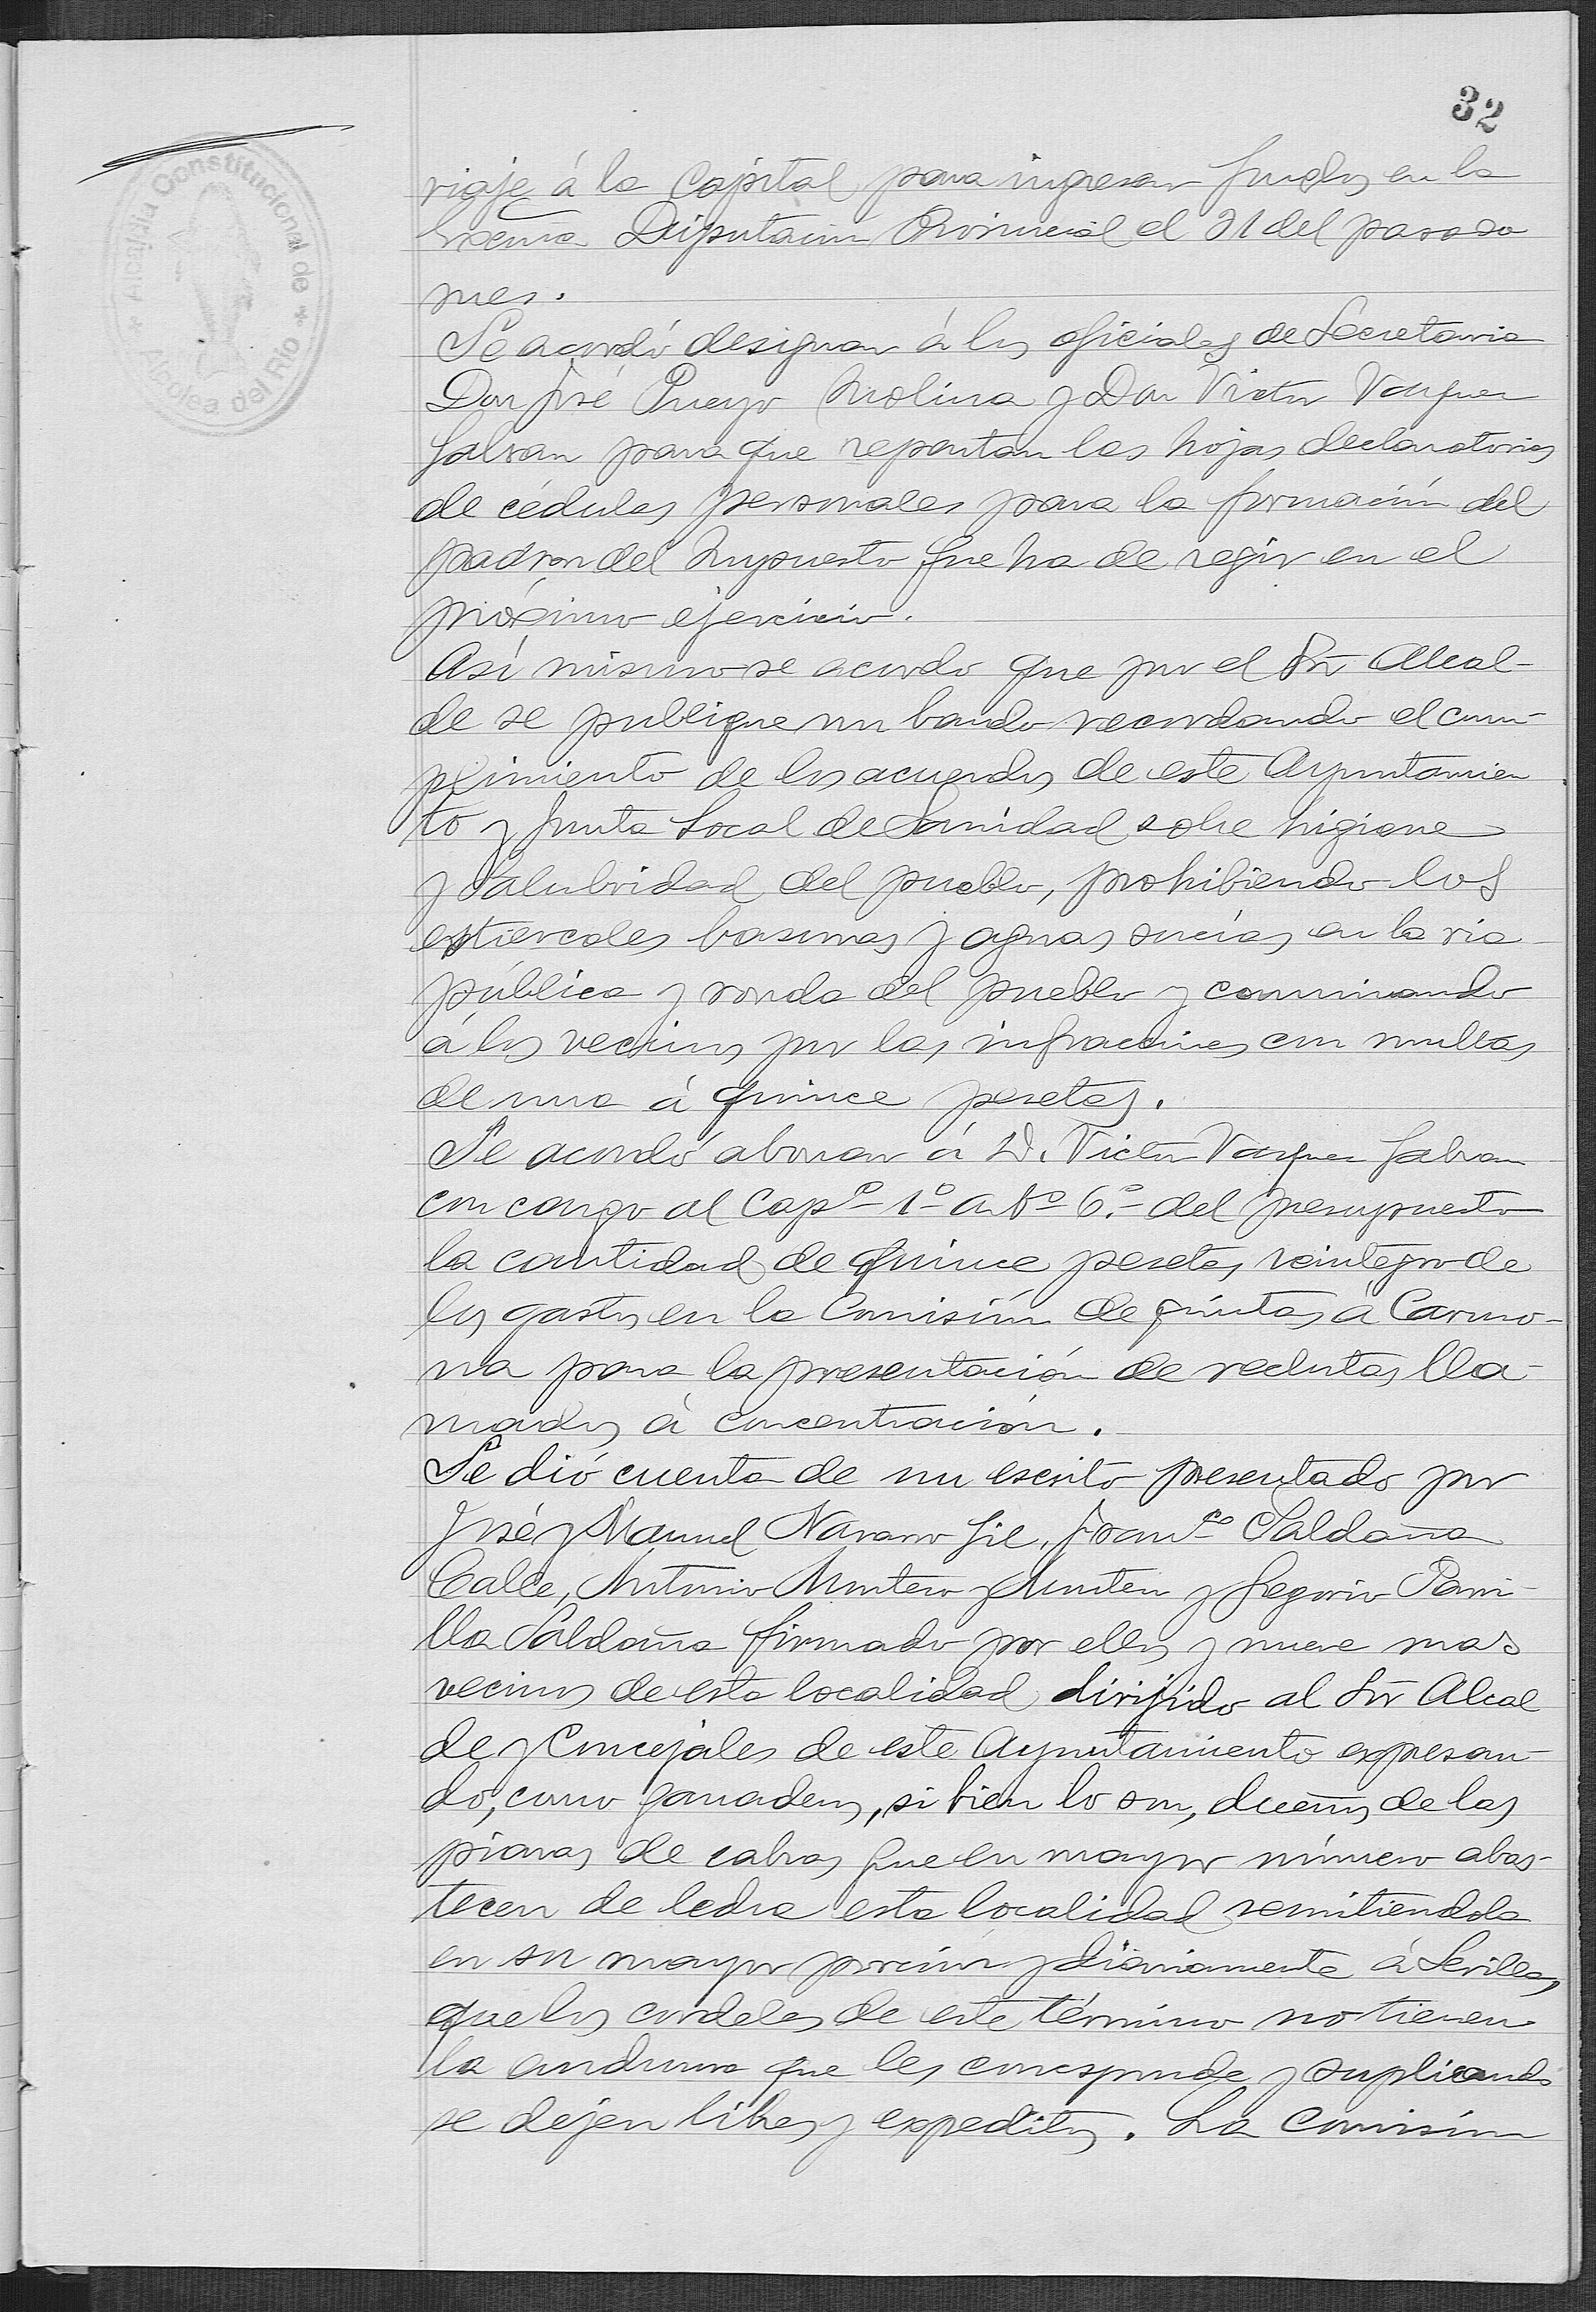 32
Alcaldía Constitucional de
* Alcolea del Rio *
viaje á la Capital para ingresar fondos en la
Excma Diputacion Provincial el 21 del pasado
mes.
Se acordó designar á los oficiales de Secretaria
Don José Pueyo Molina y Don Victor Vazquez
Galvan para que repartan las hojas declaratorias
de cédulas personales para la formación del
padron del Impuesto que ha de regir en el
próximo ejercicio.
Así mismo se acordo que por el Sr Alcal-
de se publique un bando recordando el cum-
plimiento de los acuerdos de este Ayuntamien
to y Junta Local de Sanidad sobre higiene
y Salubridad del pueblo, prohibiendo los
estiercoles basuras y aguas sucias en la via
pública y ronda del pueblo y conminando
á los vecinos por las infracciones con multas
de una á quince pesetas.
Se acordó abonar á D. Victor Vazquez Galvan
con cargo al Capº 1º Artº 6.º del presupuesto
la cantidad de quince pesetas, reintegro de
los gastos en la Comisión de quintas á Carmo-
na para la presentación de reclutas lla-
mados á concentración.
Se dió cuenta de un escrito presentado por
José y Manuel Navarro Gil, Franco Saldaña
Calle, Antonio Montero y Montero y Gregorio Parri-
lla Saldaña firmado por ellos y nueve mas
vecinos de esta localidad dirijido al Sr Alcal
de y Concejales de este Ayuntamiento expresan-
do, como ganaderos, si bien lo son, dueños de las
piaras de cabras que en mayor número abas-
tecen de leche esta localidad remitiendola
en su mayor porcion y diariamente á Sevilla,
que los cordeles de este término no tienen
la anchura que les corresponde y suplicando
se dejen libres y expeditos. La Comisión